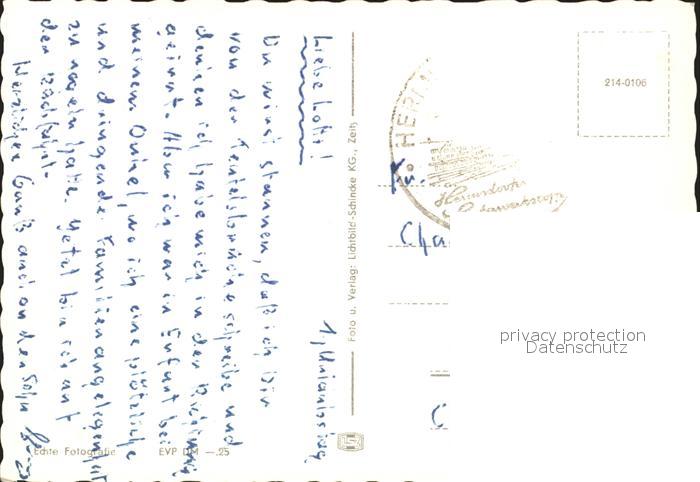 1. Urlaubstag
Liebe Lotti!
Du wirst staunen, daß ich Dir
von der Teufelsbrücke schreibe und
denken ich habe mich in der Richtung
geirrt. Aber ich war in Erfurt bei
meinem Onkel, wo ich eine plötzliche
und dringende Familienangelegenheit
zu regeln hatte. Jetzt bin ich auf
der Rückfahrt.
Herzlichen Gruß auch an den Sohn
Foto u. Verlag: Lichtbild-Schincke KG., Zeitz
Echte Fotografie EVP DM —.25
214-0106
HERM
Hermsdorfer
Fr.
Cha
C
privacy protection
Datenschutz